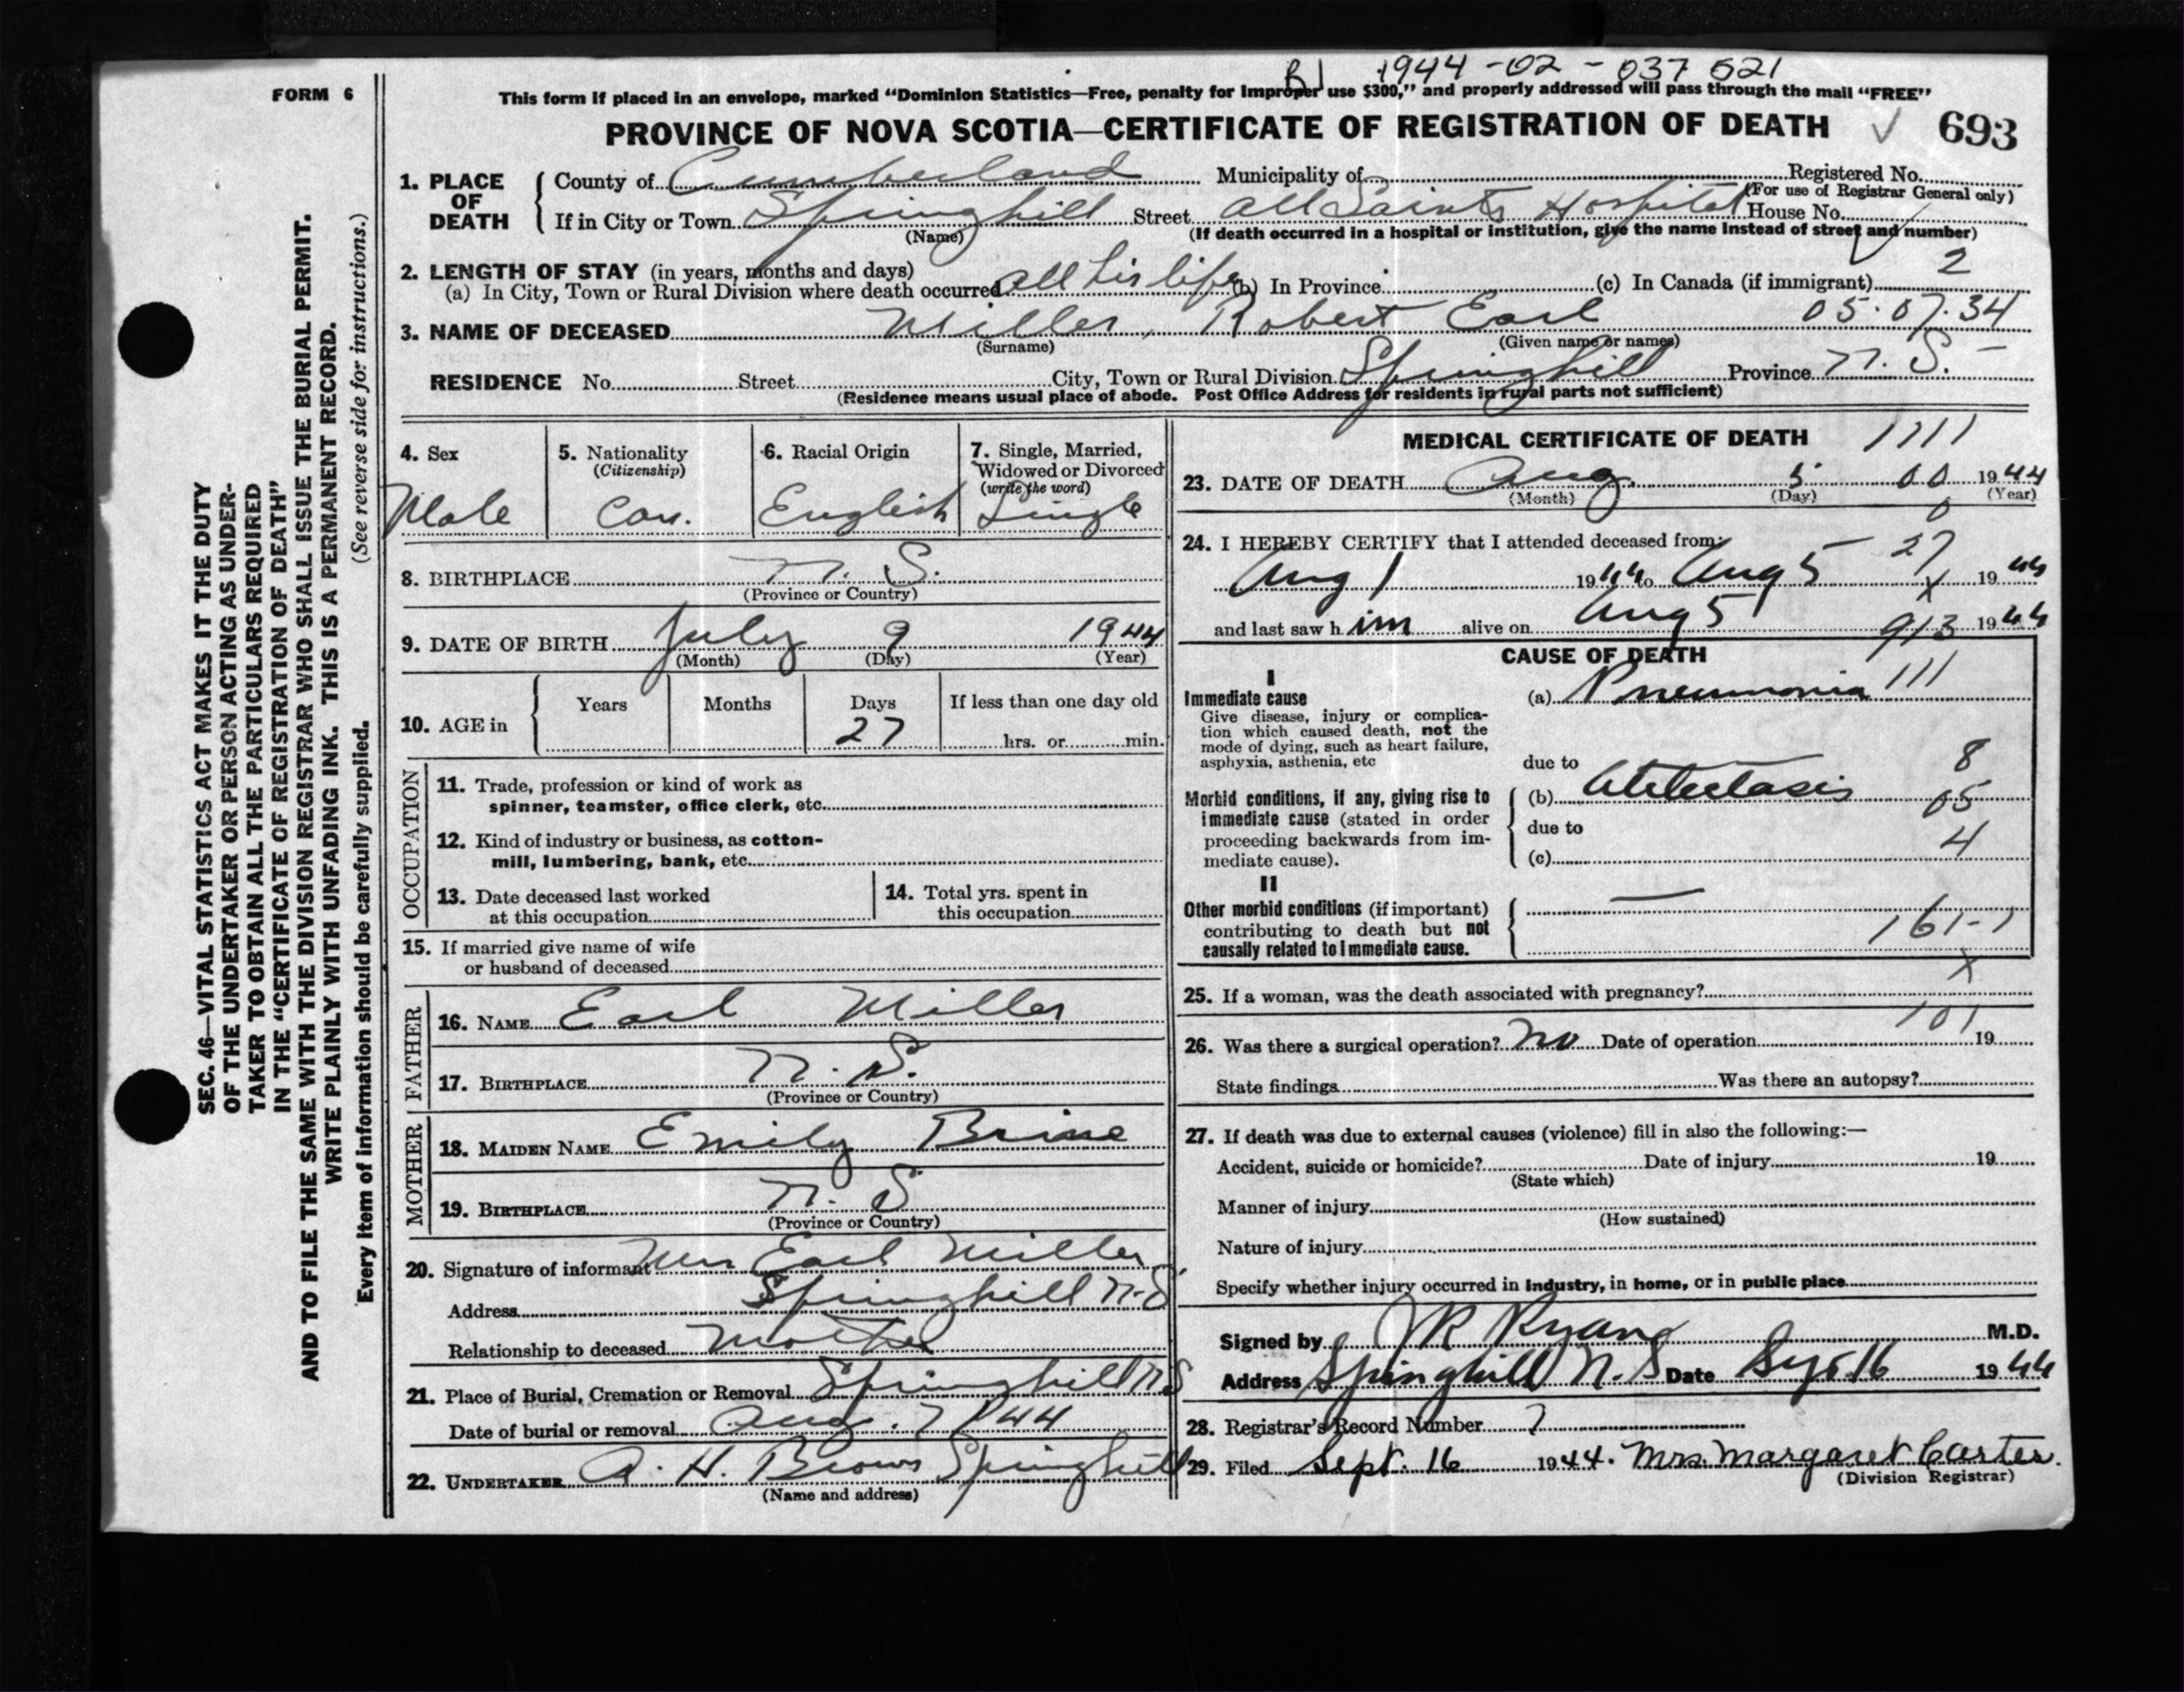 R1 1944-02-037 521
FORM 6
This form if placed in an envelope, marked “Dominion Statistics—Free, penalty for improper use $300,” and properly addressed will pass through the mail “FREE”
PROVINCE OF NOVA SCOTIA—CERTIFICATE OF REGISTRATION OF DEATH 693
SEC. 46—VITAL STATISTICS ACT MAKES IT THE DUTY
OF THE UNDERTAKER OR PERSON ACTING AS UNDER-
TAKER TO OBTAIN ALL THE PARTICULARS REQUIRED
IN THE “CERTIFICATE OF REGISTRATION OF DEATH”
AND TO FILE THE SAME WITH THE DIVISION REGISTRAR WHO SHALL ISSUE THE BURIAL PERMIT.
WRITE PLAINLY WITH UNFADING INK. THIS IS A PERMANENT RECORD.
Every item of information should be carefully supplied. (See reverse side for instructions.)
1. PLACE OF DEATH
County of Cumberland Municipality of Registered No.
(For use of Registrar General only)
If in City or Town Springhill Street All Saints Hospital House No.
(Name) (If death occurred in a hospital or institution, give the name instead of street and number)
2. LENGTH OF STAY (in years, months and days) 2
(a) In City, Town or Rural Division where death occurred all his life (b) In Province (c) In Canada (if immigrant)
3. NAME OF DECEASED Miller, Robert Earl 05.07.34
(Surname) (Given name or names)
RESIDENCE No. Street City, Town or Rural Division Springhill Province N.S.
(Residence means usual place of abode. Post Office Address for residents in rural parts not sufficient)
4. Sex
Male
5. Nationality
(Citizenship)
Can.
6. Racial Origin
English
7. Single, Married,
Widowed or Divorced
(write the word)
Single
8. BIRTHPLACE N. S.
(Province or Country)
9. DATE OF BIRTH July 9 1944
(Month) (Day) (Year)
10. AGE in
Years Months Days If less than one day old
27 hrs. or min.
OCCUPATION
11. Trade, profession or kind of work as
spinner, teamster, office clerk, etc.
12. Kind of industry or business, as cotton-
mill, lumbering, bank, etc.
13. Date deceased last worked
at this occupation
14. Total yrs. spent in
this occupation
15. If married give name of wife
or husband of deceased
FATHER
16. NAME Earl Miller
17. BIRTHPLACE N. S.
(Province or Country)
MOTHER
18. MAIDEN NAME Emily Brine
19. BIRTHPLACE N. S
(Province or Country)
20. Signature of informant Mrs Earl Miller
Address Springhill N.S
Relationship to deceased Mother
21. Place of Burial, Cremation or Removal Springhill N.S
Date of burial or removal Aug. 7 1944
22. UNDERTAKER A. H. Brown Springhill
(Name and address)
MEDICAL CERTIFICATE OF DEATH 1111
23. DATE OF DEATH Aug. 5 00 1944
(Month) (Day) (Year)
0
24. I HEREBY CERTIFY that I attended deceased from: 27
Aug 1 1944 to Aug 5 X 1944
and last saw him alive on Aug 5 913 1944
CAUSE OF DEATH
I
Immediate cause
Give disease, injury or complica-
tion which caused death, not the
mode of dying, such as heart failure,
asphyxia, asthenia, etc
(a) Pneumonia 111
due to 8
Morbid conditions, if any, giving rise to
immediate cause (stated in order
proceeding backwards from im-
mediate cause).
(b) Atelectasis 05
due to
(c) 4
II
Other morbid conditions (if important)
contributing to death but not
causally related to immediate cause.
—
161-1
X
25. If a woman, was the death associated with pregnancy?
101
26. Was there a surgical operation? No Date of operation 19
State findings Was there an autopsy?
27. If death was due to external causes (violence) fill in also the following:—
Accident, suicide or homicide? Date of injury 19
(State which)
Manner of injury
(How sustained)
Nature of injury
Specify whether injury occurred in industry, in home, or in public place
Signed by J R Ryan M.D.
Address Springhill N.S Date 16 1944
28. Registrar's Record Number 7
29. Filed Sept. 16 1944. Mrs. Margaret Carter.
(Division Registrar)